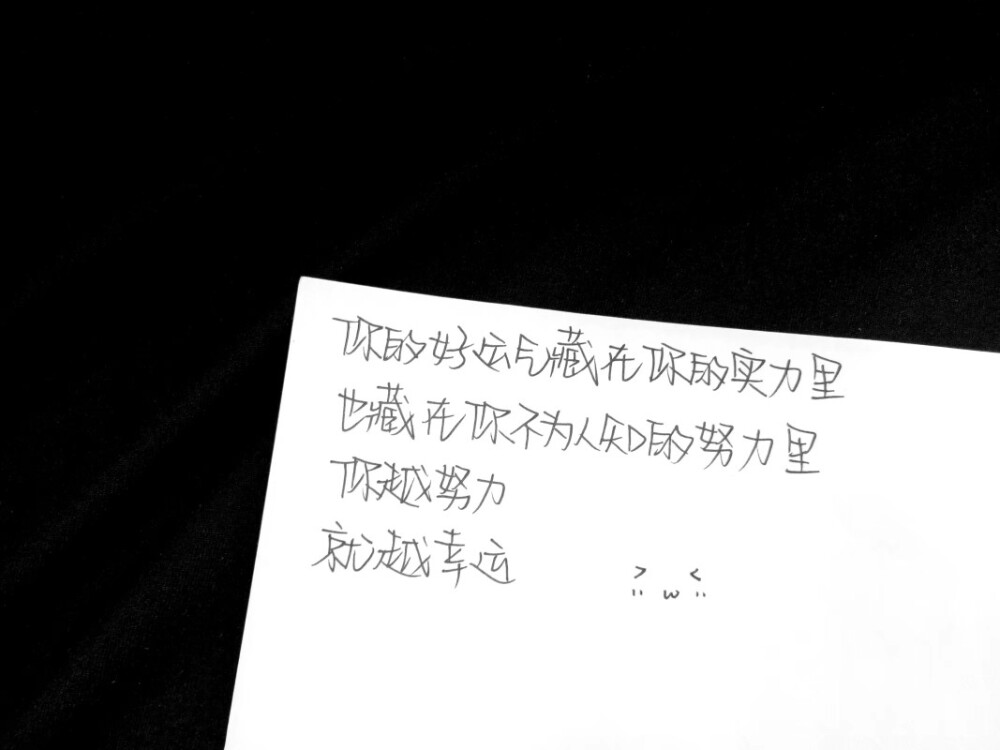 你的好运气藏在你的实力里
也藏在你不为人知的努力里
你越努力
就越幸运